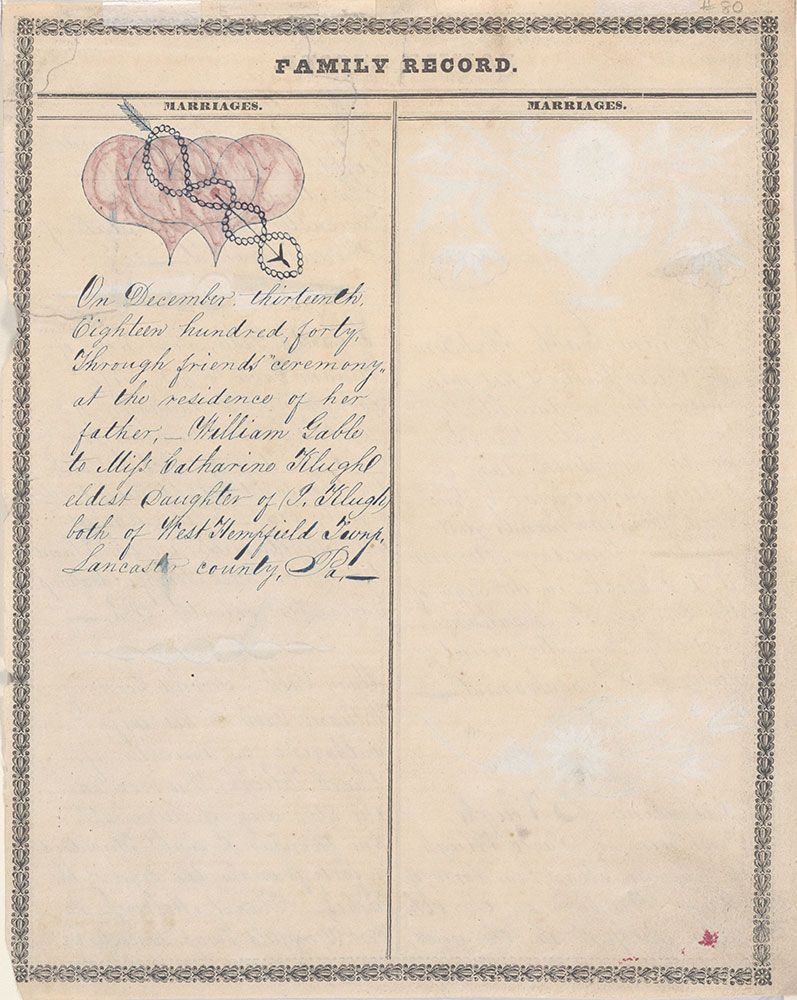 # 80
FAMILY RECORD.
MARRIAGES.
MARRIAGES.
On December thirteenth,
Eighteen hundred, forty,
Through friends" ceremony„
at the residence of her
father, – William Gable
to Miſs Catharine Klugh
eldest Daughter of J. Klugh
both of West Hempfield Twnp.
Lancaster county, Pa, —